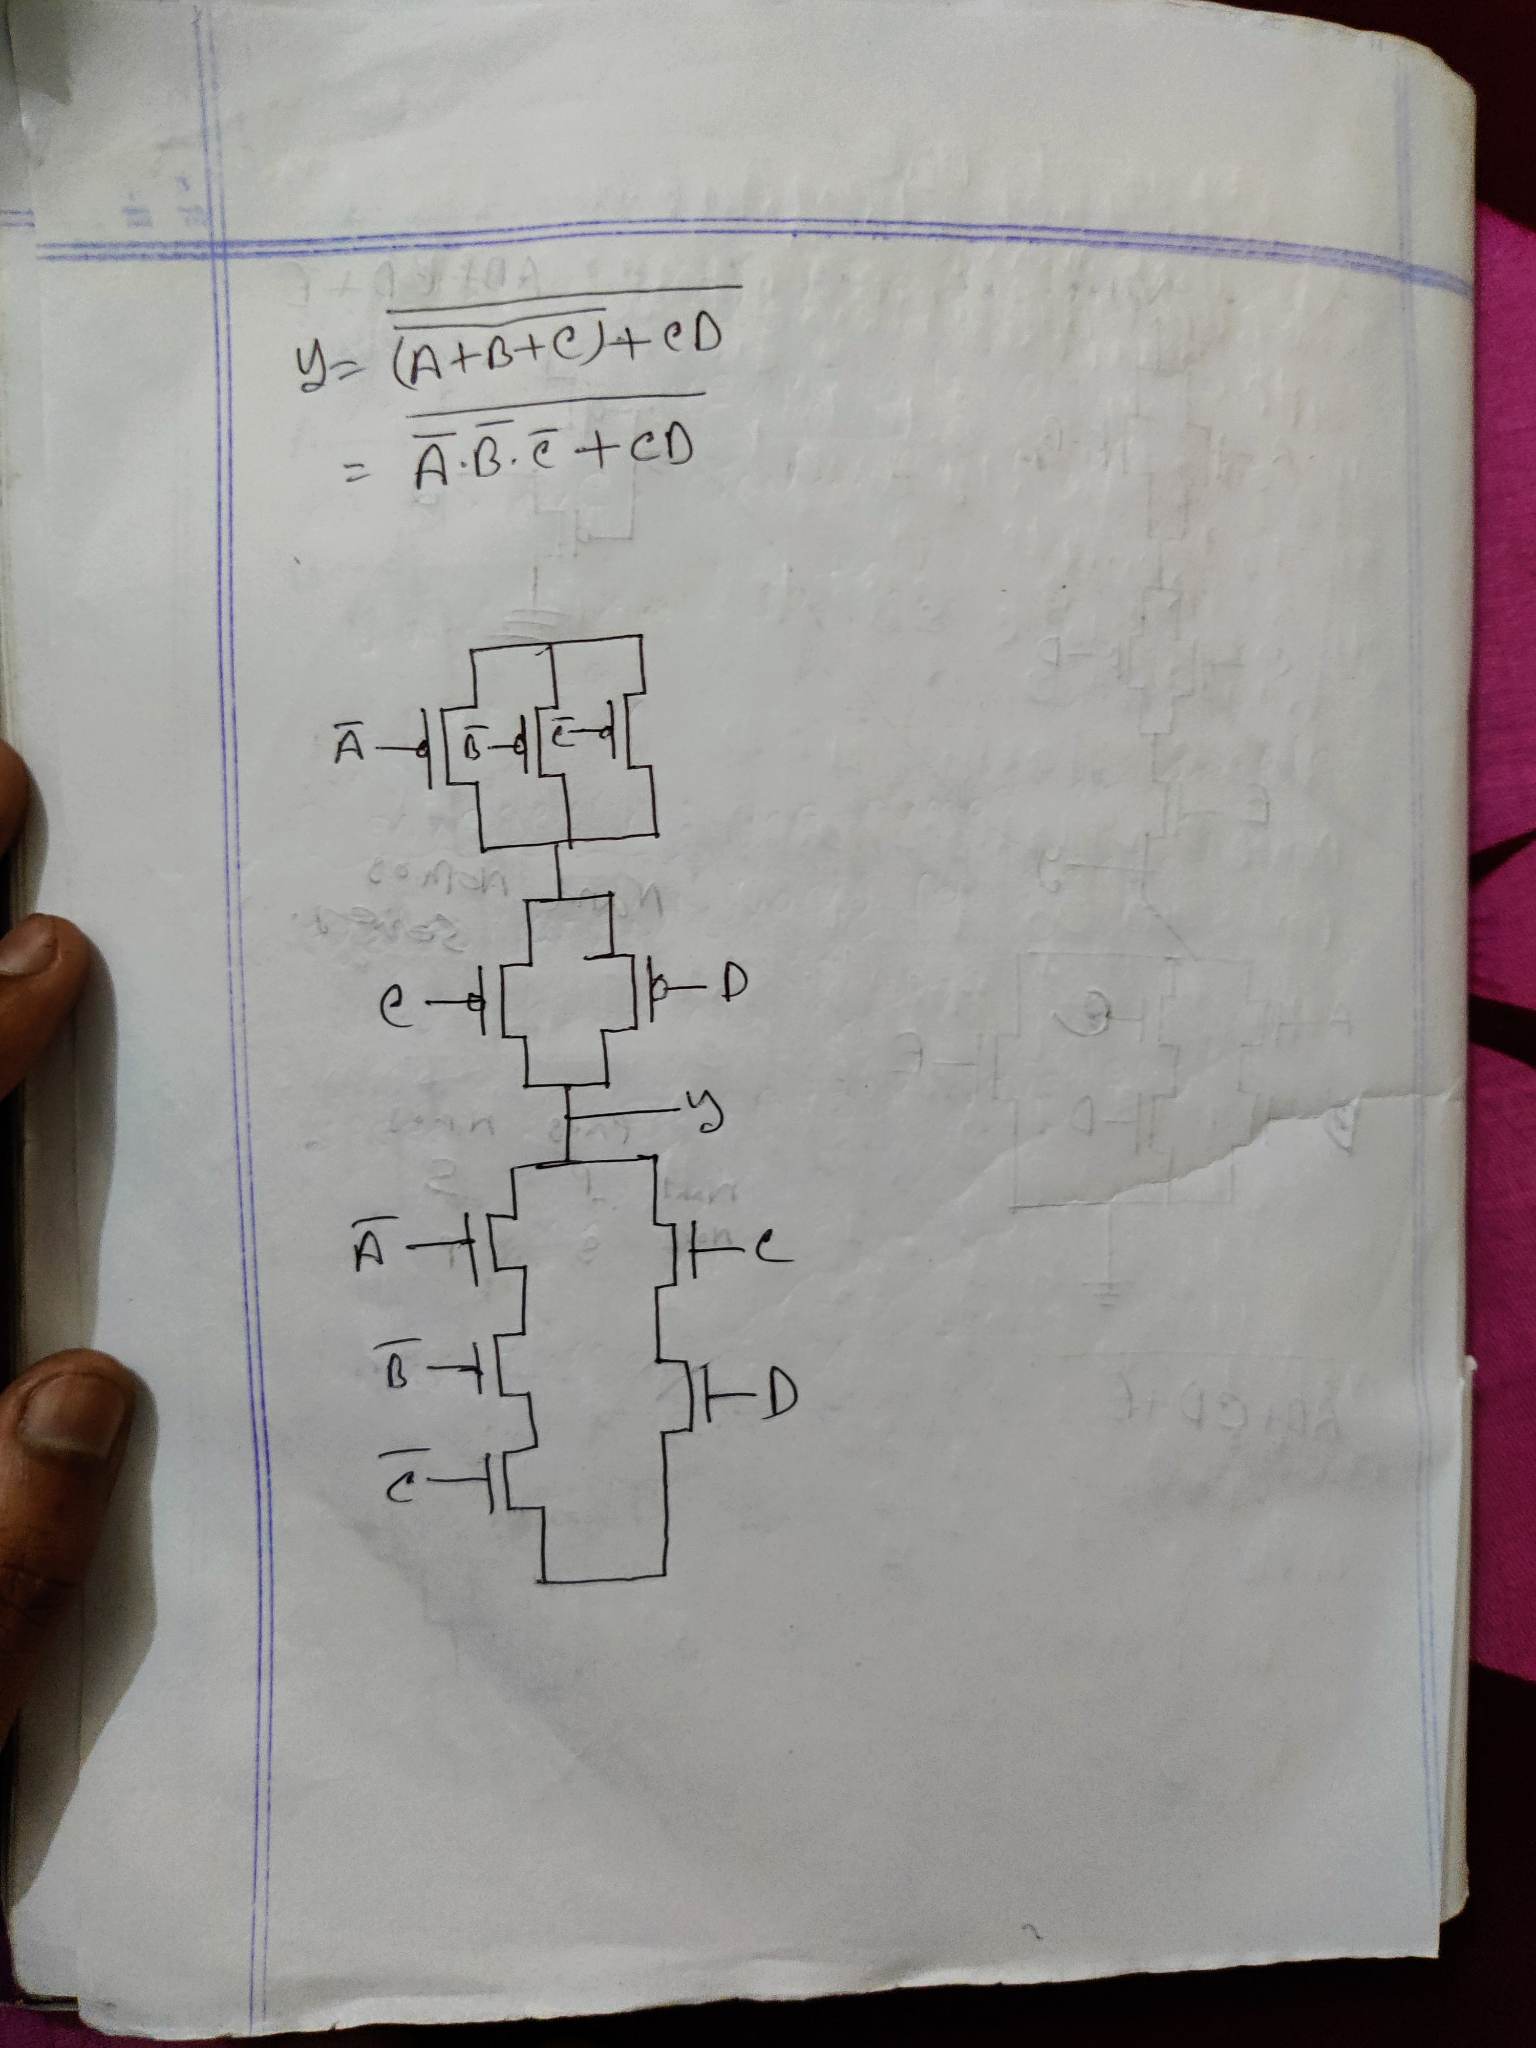 y = \overline{\overline{(A+B+C)}+CD}
= \overline{\overline{A}.\overline{B}.\overline{C}+CD}
\overline{A} \overline{B} \overline{C}
C D
y
\overline{A} C
\overline{B} D
\overline{C}